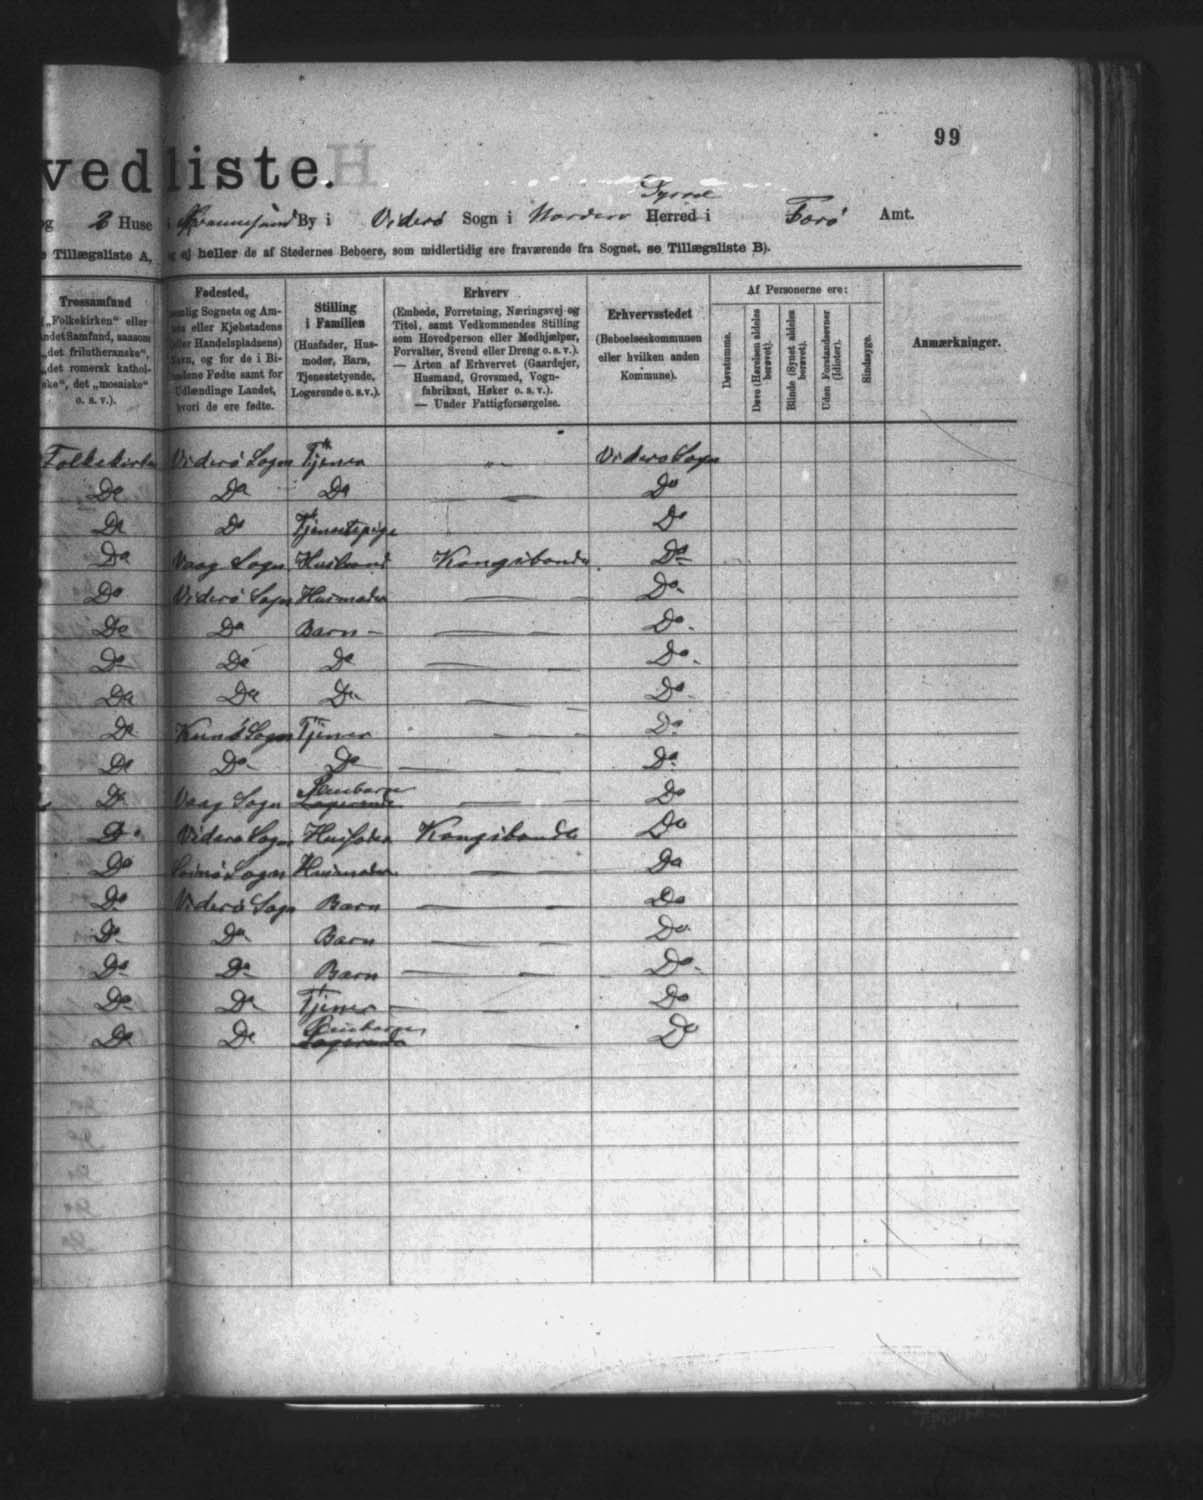 99
vedliste.
og 2 Huse i Hvannesund By i Viderø Sogn i Nordero Syssel Herred i Færø Amt.
Tillægsliste A, og ej heller de af Stedernes Beboere, som midlertidig ere fraværende fra Sognet, se Tillægsliste B).
Trossamfund
„Folkekirken“ eller
andet Samfund, saasom
„det frilutheranske“,
„det romersk kathol-
ske“, det „mosaiske“
o. s. v.).
Fødested,
nemlig Sognets og Am-
tets eller Kjøbstadens
(eller Handelspladsens)
Navn, og for de i Bi-
landene Fødte samt for
Udlændinge Landet,
hvori de ere fødte.
Stilling
i Familien
(Husfader, Hus-
moder, Barn,
Tjenestetyende,
Logerende o. s.v.).
Erhverv
(Embede, Forretning, Næringsvej og
Titel, samt Vedkommendes Stilling
som Hovedperson eller Medhjælper,
Forvalter, Svend eller Dreng o. s. v.).
— Arten af Erhvervet (Gaardejer,
Husmand, Grovsmed, Vogn-
fabrikant, Høker o. s. v.).
— Under Fattigforsørgelse.
Erhvervsstedet
(Beboelseskommunen
eller hvilken anden
Kommune).
Af Personerne ere:
Døvstumme.
Døve (Hørelsen aldeles
berøvet).
Blinde (Synet aldeles
berøvet).
Uden Forstandsevner
(Idioter).
Sindssyge.
Anmærkninger.
Folkekirken Viderø Sogn Tjener „ Viderø Sogn
Do Do Do — Do
Do Do Tjenestepige Do
Do Vaag Sogn Husbond Kongsbonde. Do
Do Viderø Sogn Husmoder — — Do
Do Do Barn — — — Do
Do Do Do — — Do
Do Do Do — — Do
Do Kunø Sogn Tjener - - - Do
Do Do Do — — — Do
Do Vaag Sogn Logerende — — Do
Do Viderø Sogn Husfader Kongsbonde Do
Do Sogn Husmoder — — Do
Do Viderø Sogn Barn — — — Do
Do Do Barn — — Do
Do Do Barn — — — Do
Do Do Tjener — Do
Do Do Logerende — Do